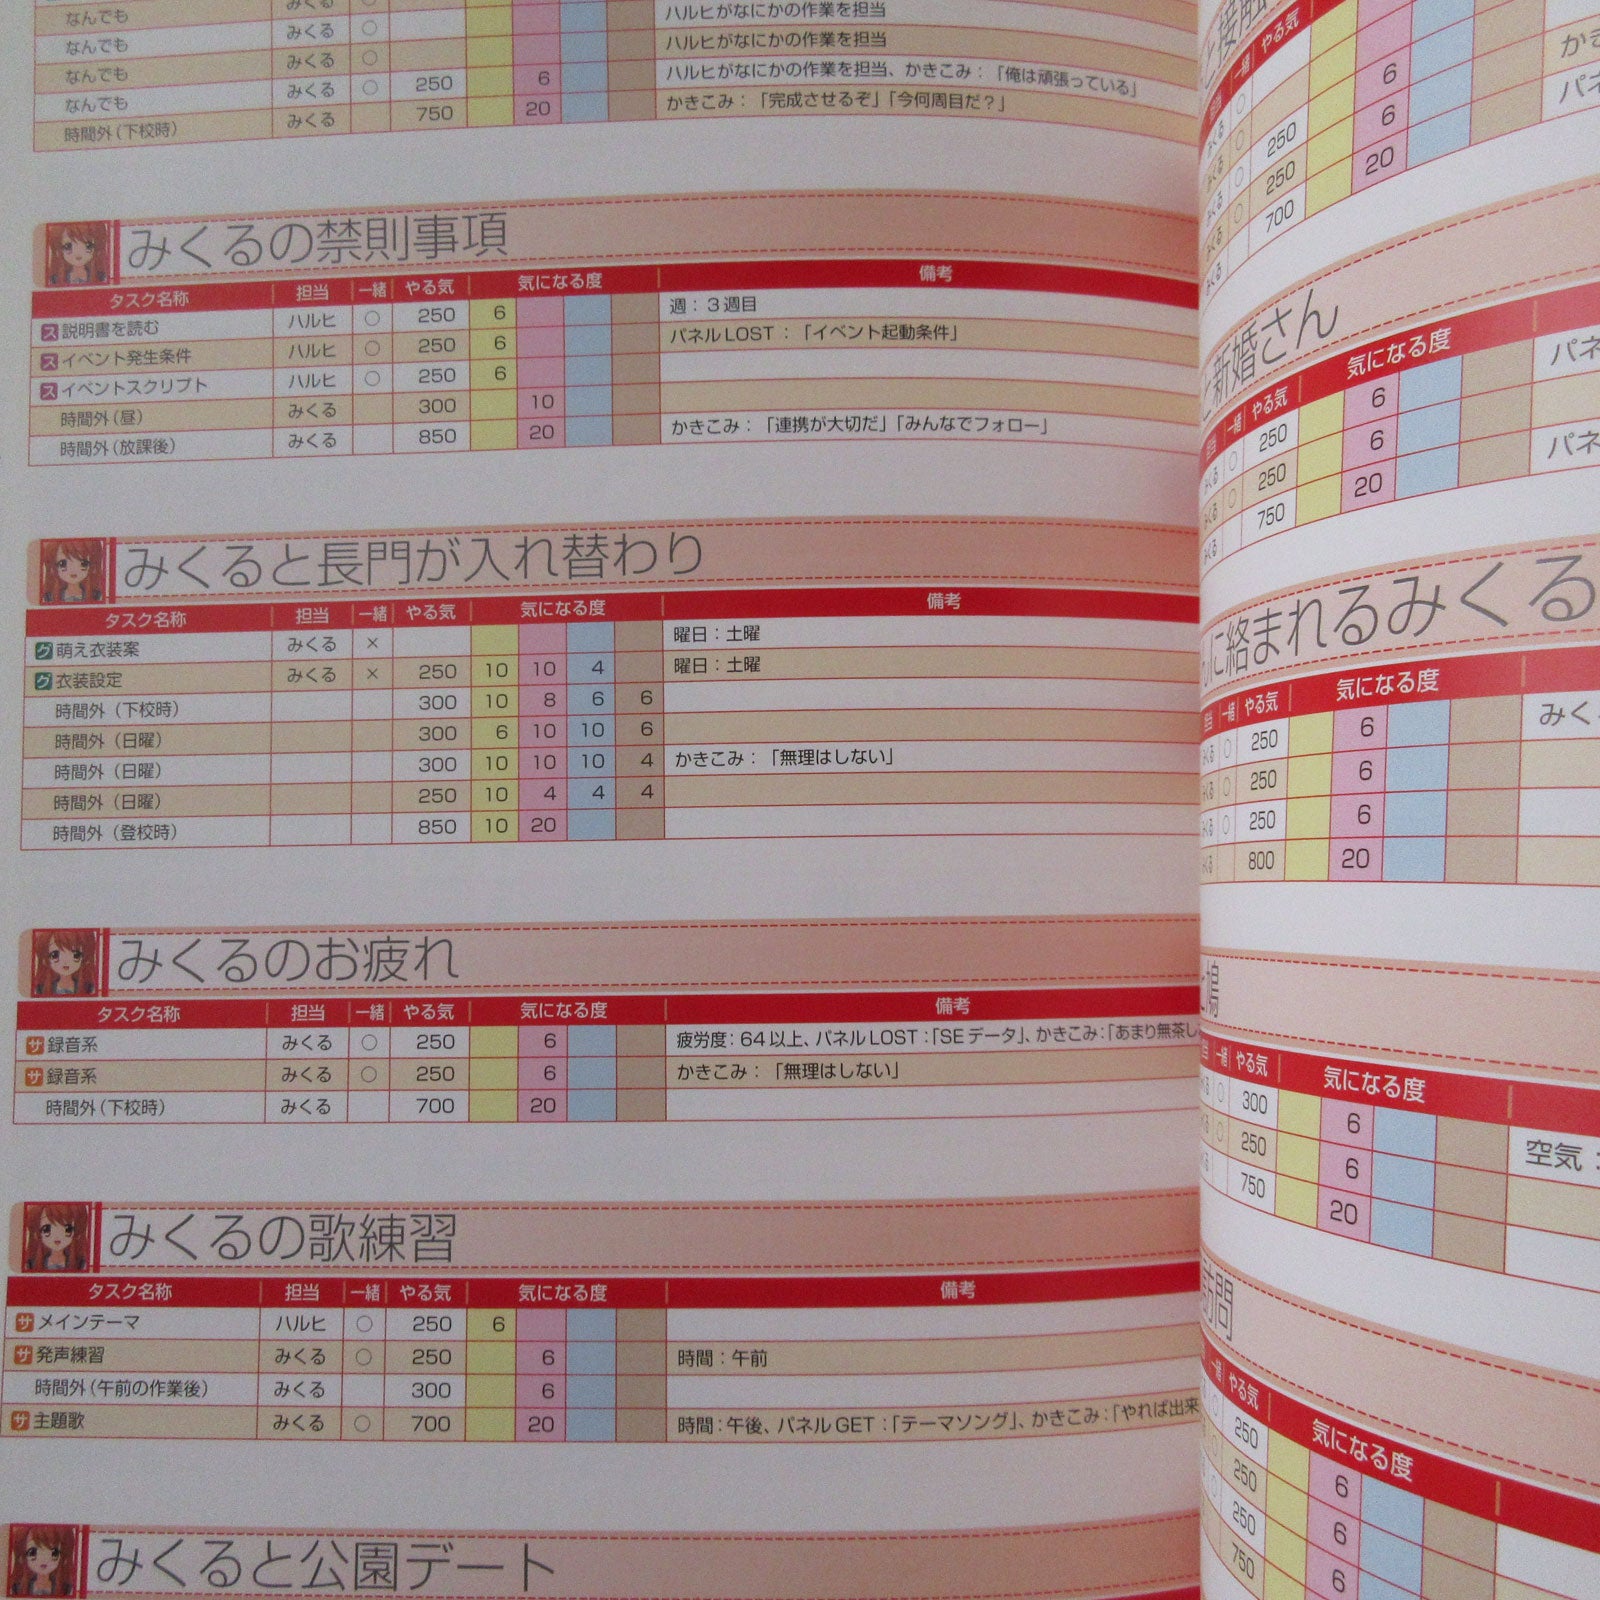 なんでも みくる ○ ハルヒがなにかの作業を担当
なんでも みくる ○ ハルヒがなにかの作業を担当
なんでも みくる ○ ハルヒがなにかの作業を担当、かきこみ：「俺は頑張っている」
なんでも みくる ○ 250 6 かきこみ：「完成させるぞ」「今何周目だ？」
時間外（下校時） みくる 750 20
みくるの禁則事項
タスク名称 担当 一緒 やる気 気になる度 備考
ス 説明書を読む ハルヒ ○ 250 6 週：3週目
ス イベント発生条件 ハルヒ ○ 250 6 パネルLOST：「イベント起動条件」
ス イベントスクリプト ハルヒ ○ 250 6
時間外（昼） みくる 300 10
時間外（放課後） みくる 850 20 かきこみ：「連携が大切だ」「みんなでフォロー」
みくると長門が入れ替わり
タスク名称 担当 一緒 やる気 気になる度 備考
グ 萌え衣装案 みくる × 曜日：土曜
グ 衣装設定 みくる × 250 10 10 4 曜日：土曜
時間外（下校時） 300 10 8 6 6
時間外（日曜） 300 6 10 10 6
時間外（日曜） 300 10 10 10 4 かきこみ：「無理はしない」
時間外（日曜） 250 10 4 4 4
時間外（登校時） 850 10 20
みくるのお疲れ
タスク名称 担当 一緒 やる気 気になる度 備考
サ 録音系 みくる ○ 250 6 疲労度：64以上、パネルLOST：「SEデータ」、かきこみ：「あまり無茶し
サ 録音系 みくる ○ 250 6 かきこみ：「無理はしない」
時間外（下校時） みくる 700 20
みくるの歌練習
タスク名称 担当 一緒 やる気 気になる度 備考
サ メインテーマ ハルヒ ○ 250 6
サ 発声練習 みくる ○ 250 6 時間：午前
時間外（午前の作業後） みくる 300 6
サ 主題歌 みくる ○ 700 20 時間：午後、パネルGET：「テーマソング」、かきこみ：「やれば出来
みくると公園デート
と接触
一緒 やる気
みくる ○ 6 かき
みくる ○ 250 6 パネ
みくる ○ 250 20
みくる ○ 700
みくる
と新婚さん
担当 一緒 やる気 気になる度
みくる ○ 250 6 パネ
みくる ○ 250 6
みくる 750 20 パネ
に絡まれるみくる
担当 一緒 やる気 気になる度
みくる ○ 250 6 みく
みくる ○ 250 6
みくる ○ 250 6
みくる 800 20
鳩
一緒 やる気 気になる度
○ 300 6
○ 250 6 空気：
750 20
訪問
一緒 やる気 気になる度
250 6
250 6
250 6
750